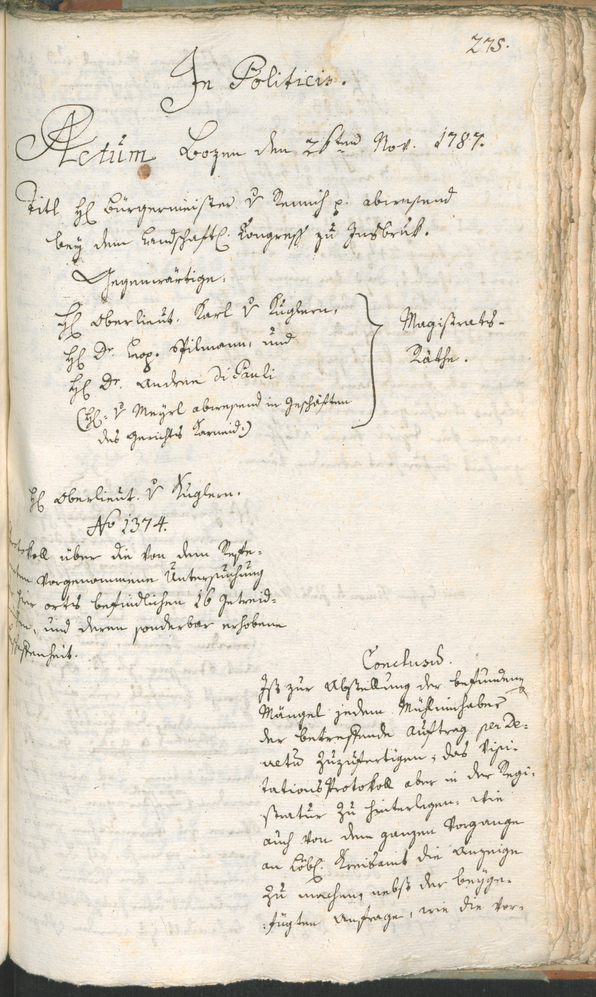 275.
In Politicis.
Actum Bozen den 26ten Nov. 1787.
Titl H. Bürgermeister v Remich p. abwesend
bey dem Landschaftl. Kongress zu Insbruk.
Gegenwärtige.
H. Oberlieut. Karl v Kuglern,
H. Dr. Leop. Spilmann, und
H. Dr. Andrä Di Pauli
(H. v Mayrl abwesend in Geschäften
des Gerichts Karneid.)
Magistrats-
Räthe.
H. Oberlieut. v Kuglern.
No 1374.
Protokoll über die von dem Refe-
renten vorgenommene Untersuchung
hier orts befindlichen 16 Getreid-
und deren sonderbar erhobene
Beschaffenheit.
Conclusum.
Ist zur Abstellung der befundenen
Mängel jedem Mühlinhaber
der betreffende Auftrag per De-
cretum zuzufertigen, das Visi-
tationsProtokoll aber in der Regi-
stratur zu hinterlegen, wie
auch von dem ganzen Vorgange
an Löbl. Kreisamt die Anzeige
zu machen, nebst der beyge-
fügten Anfrage, wie die vor-